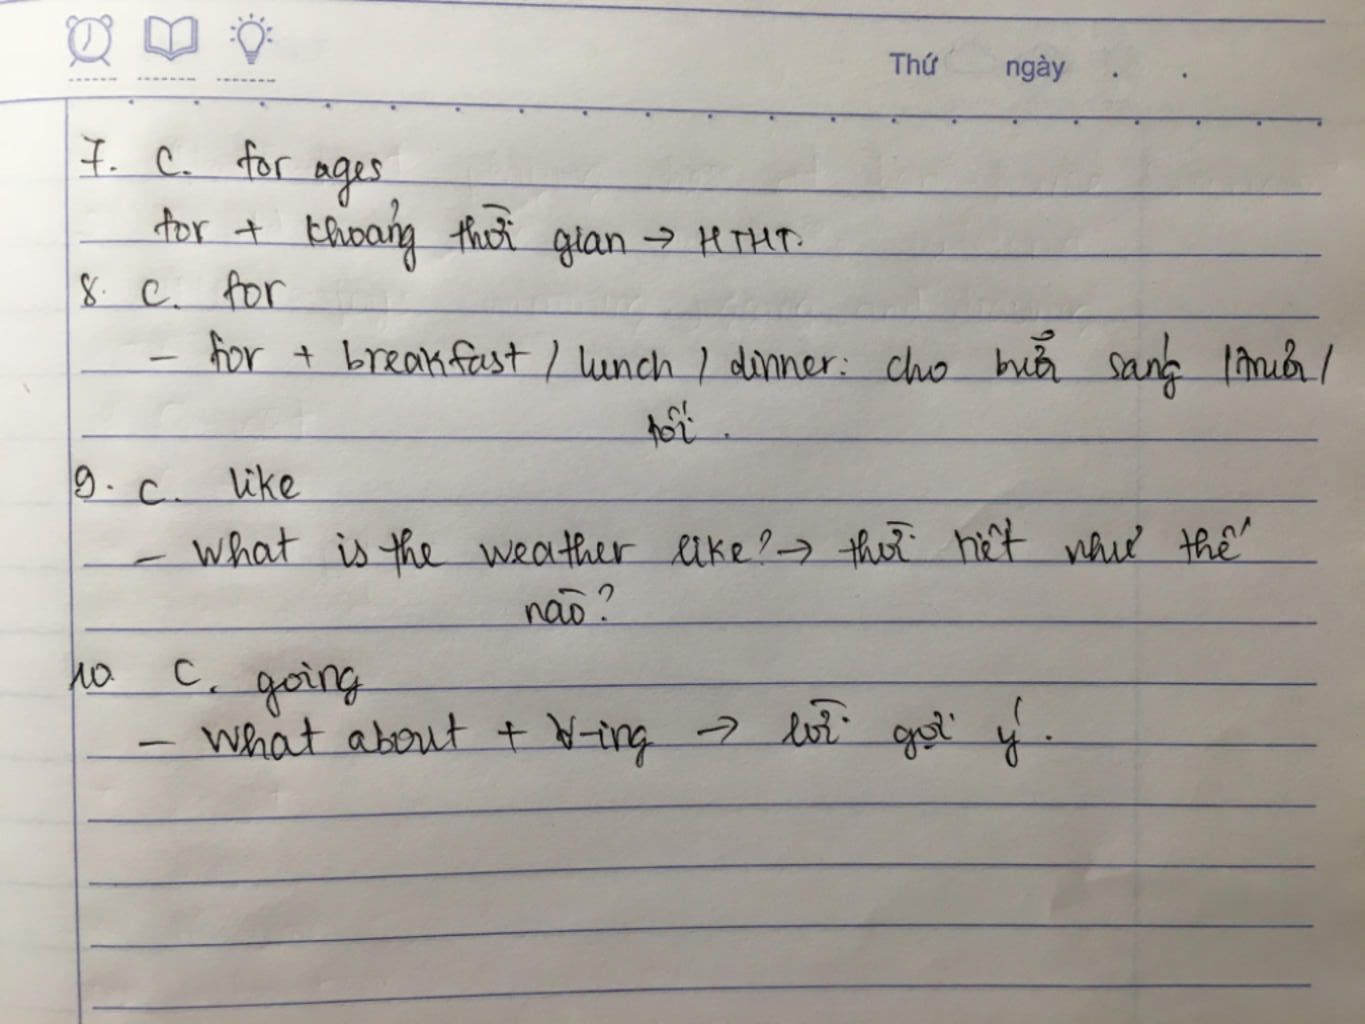 Thứ ngày . .
7. C. for ages
for + khoảng thời gian → HTHT.
8. C. for
- for + breakfast / lunch / dinner: cho buổi sáng / trưa /
tối.
9. C. like
- What is the weather like? → thời tiết như thế
nào?
10. C. going
- What about + V-ing → lời gợi ý.